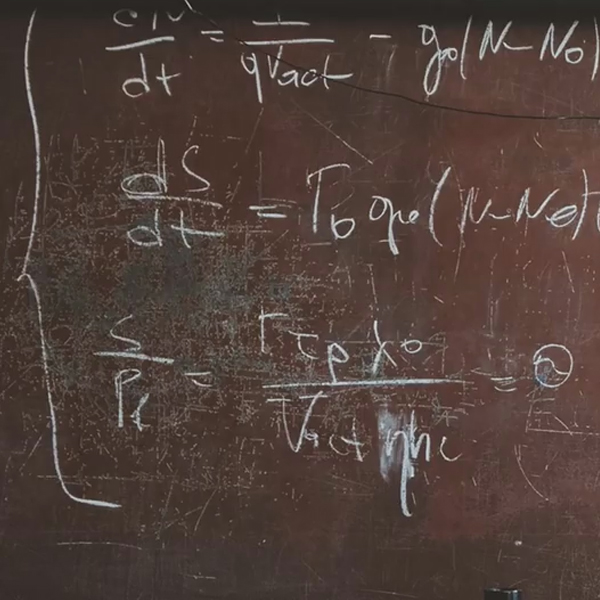 dN/dt = I/qVact - g₀(N-N₀)
dS/dt = Γ₀ g₀(N-N₀)
S/Pf = Γτpλ₀/Vact ηhc = ϑ